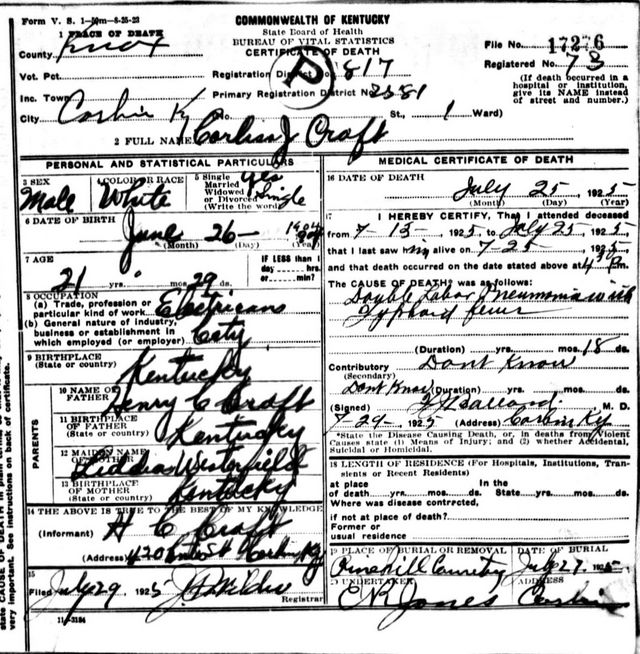 Form V. S. 1-10m-8-25-23
COMMONWEALTH OF KENTUCKY
State Board of Health
BUREAU OF VITAL STATISTICS
CERTIFICATE OF DEATH
1 PLACE OF DEATH
County Knox
File No. 17276
Registered No. 73
(If death occurred in a hospital or institution, give its NAME instead of street and number.)
Vot. Pct.
Registration District No. 817
P
Inc. Town
Primary Registration District No. 2381
City Corbin Ky No. St., 1 Ward)
2 FULL NAME Corliss J Craft
PERSONAL AND STATISTICAL PARTICULARS
3 SEX
Male
4 COLOR OR RACE
White
5 Single
Married
Widowed
or Divorced
(Write the word)
yes
Single
6 DATE OF BIRTH
June 26 - 1904
(Month) (Day) (Year)
7 AGE
21 yrs. 29 ds.
IF LESS than 1
day hrs.
or min?
8 OCCUPATION
(a) Trade, profession or
particular kind of work Electricans
(b) General nature of industry,
business or establishment in
which employed (or employer) City
9 BIRTHPLACE
(State or country)
Kentucky
PARENTS
10 NAME OF
FATHER
Henry C Craft
11 BIRTHPLACE
OF FATHER
(State or country)
Kentucky
12 MAIDEN NAME
OF MOTHER
Westerfield
13 BIRTHPLACE
OF MOTHER
(State or country)
Kentucky
14 THE ABOVE IS TRUE TO THE BEST OF MY KNOWLEDGE
(Informant) H C Craft
(Address) 420 Corbin Ky
15
Filed July 29 1925
Registrar
11-3184
MEDICAL CERTIFICATE OF DEATH
16 DATE OF DEATH
July 25 1925
(Month) (Day) (Year)
17
I HEREBY CERTIFY, That I attended deceased
from 7-13- 1925 to July 25 1925
that I last saw him alive on 7-25 1925
and that death occurred on the date stated above at 4 P m.
The CAUSE OF DEATH was as follows:
Double Lobar Pneumonia with
Typhoid fever
(Duration) yrs. mos. 18 ds.
Contributory Dont Know
(Secondary)
Dont Know (Duration) yrs. mos. ds.
(Signed) M. D.
7-29 1925 (Address) Corbin Ky
*State the Disease Causing Death, or, in deaths from Violent
Causes state (1) Means of Injury; and (2) whether Accidental,
Suicidal or Homicidal.
18 LENGTH OF RESIDENCE (For Hospitals, Institutions, Transients or Recent Residents)
at place
of death yrs. mos. ds.
In the
State yrs. mos. ds.
Where was disease contracted,
if not at place of death?
Former or
usual residence
19 PLACE OF BURIAL OR REMOVAL
Pinehill Cemetery
DATE OF BURIAL
July 27 1925
20 UNDERTAKER
E R Jones
ADDRESS
Corbin
state CAUSE OF DEATH
very important. See instructions on back of certificate.